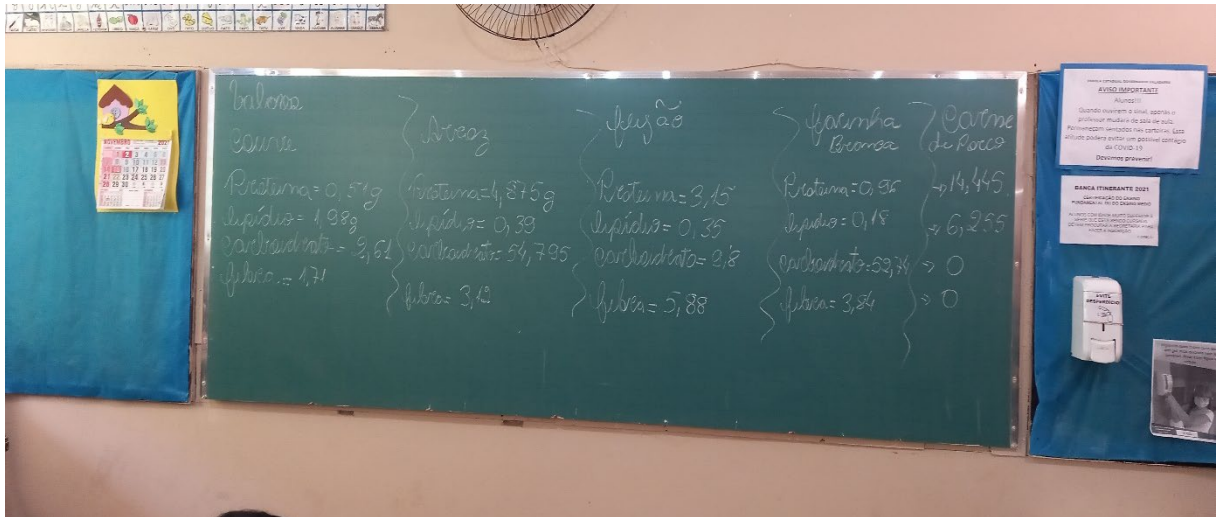 Valores
couve
Proteina = 0,51g
lipídio = 1,98g
carboidrato = 2,61
fibra = 1,71
Arroz
proteina = 4,875g
lipídio = 0,39
carboidrato = 54,795
fibra = 3,12
feijão
Proteina = 3,15
lipídio = 0,35
carboidrato = 9,8
fibra = 5,88
farinha
Branca
Proteina = 0,96
lipídio = 0,18
carboidrato = 52,74
fibra = 3,84
Carne
de Porco
→ 14,445
→ 6,255
→ 0
→ 0
NOVEMBRO 2021
AVISO IMPORTANTE
Alunos!!!
Quando ouvirem o sinal, apenas o
professor mudará de sala de aula.
Permaneçam sentados nas carteiras. Essa
atitude poderá evitar um possível contágio
da COVID-19
Devemos prevenir!
BANCA ITINERANTE 2021
CERTIFICAÇÃO DO ENSINO
FUNDAMENTAL OU DO ENSINO MÉDIO
EVITE
DESPERDÍCIO